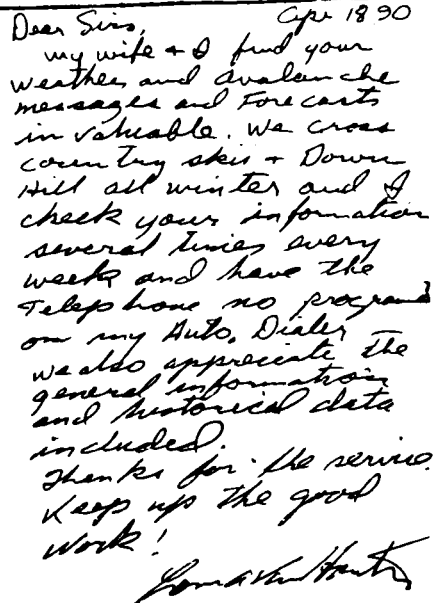 Dear Sirs, Apr 18 90
my wife + I find your
weather and avalanche
messages and Forecasts
invaluable. We cross
country skis + Down
Hill all winter and I
check your information
several times every
week and have the
Telephone no program'd
on my Auto. Dialer
we also appreciate the
general information
and historical data
included.
Thanks for the service.
Keep up the good
work!